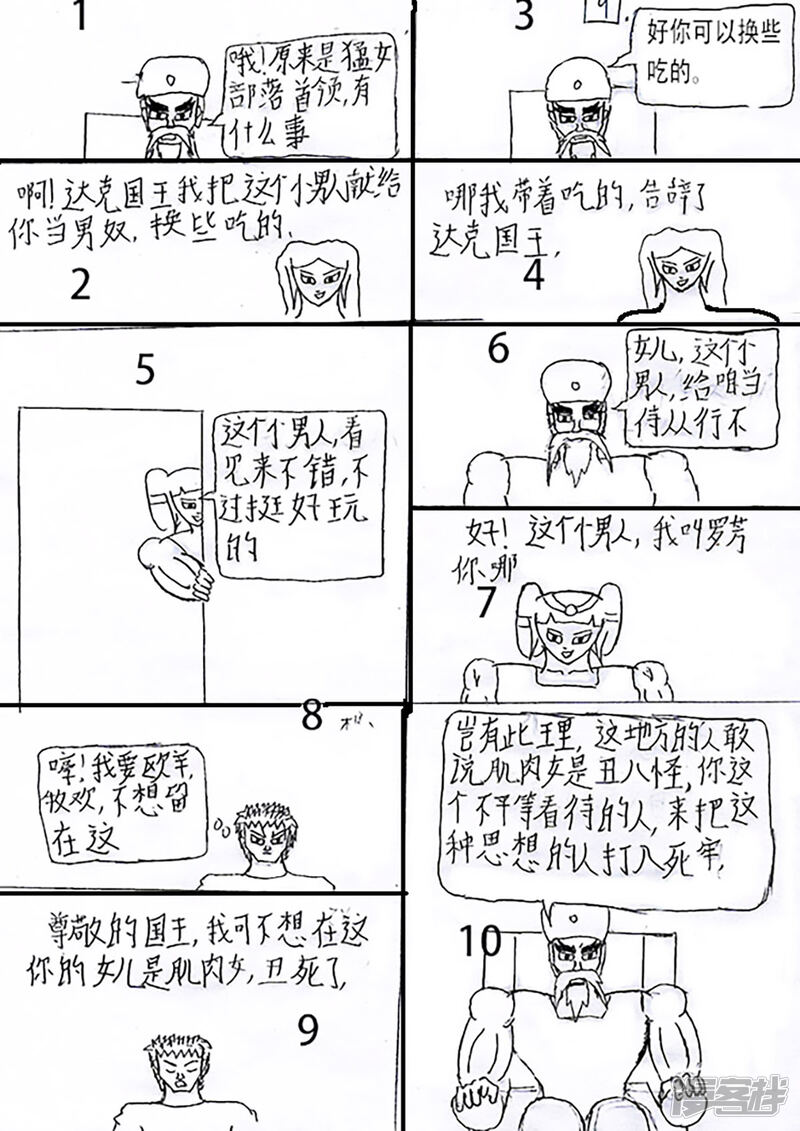 1
哦!原来是猛女
部落首领,有
什么事
啊!达克国王我把这个男人献给
你当男奴,换些吃的.
2
3
9
好你可以换些
吃的。
哪我带着吃的,告辞了
达克国王,
4
5
这个男人,看
见来不错,不
过挺好玩
的
6
女儿,这个
男人,给咱当
侍从行不
好!这个男人,我叫罗芳
你哪
7
8
我要欧羊,
牧欢,不想留
在这
尊敬的国王,我可不想在这
你的女儿是肌肉女,丑死了,
9
岂有此理,这地方的人敢
说肌肉女是丑八怪,你这
个不平等看待的人,来把这
种思想的人打入死牢,
10
漫客栈